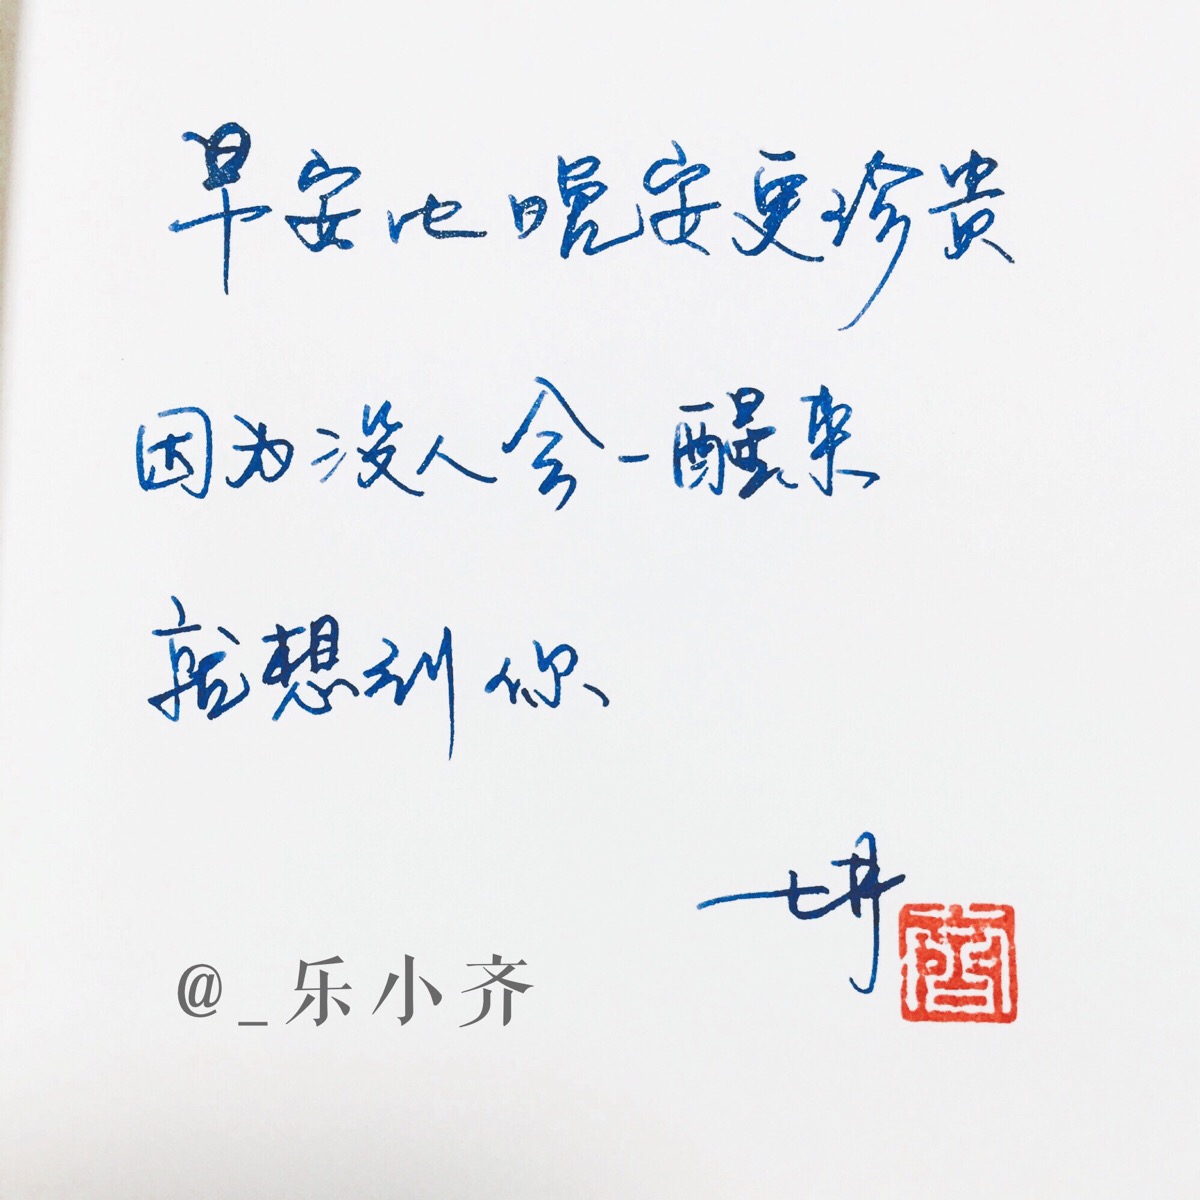 早安比晚安更珍贵
因为没人会一醒来
就想到你
@_乐小齐